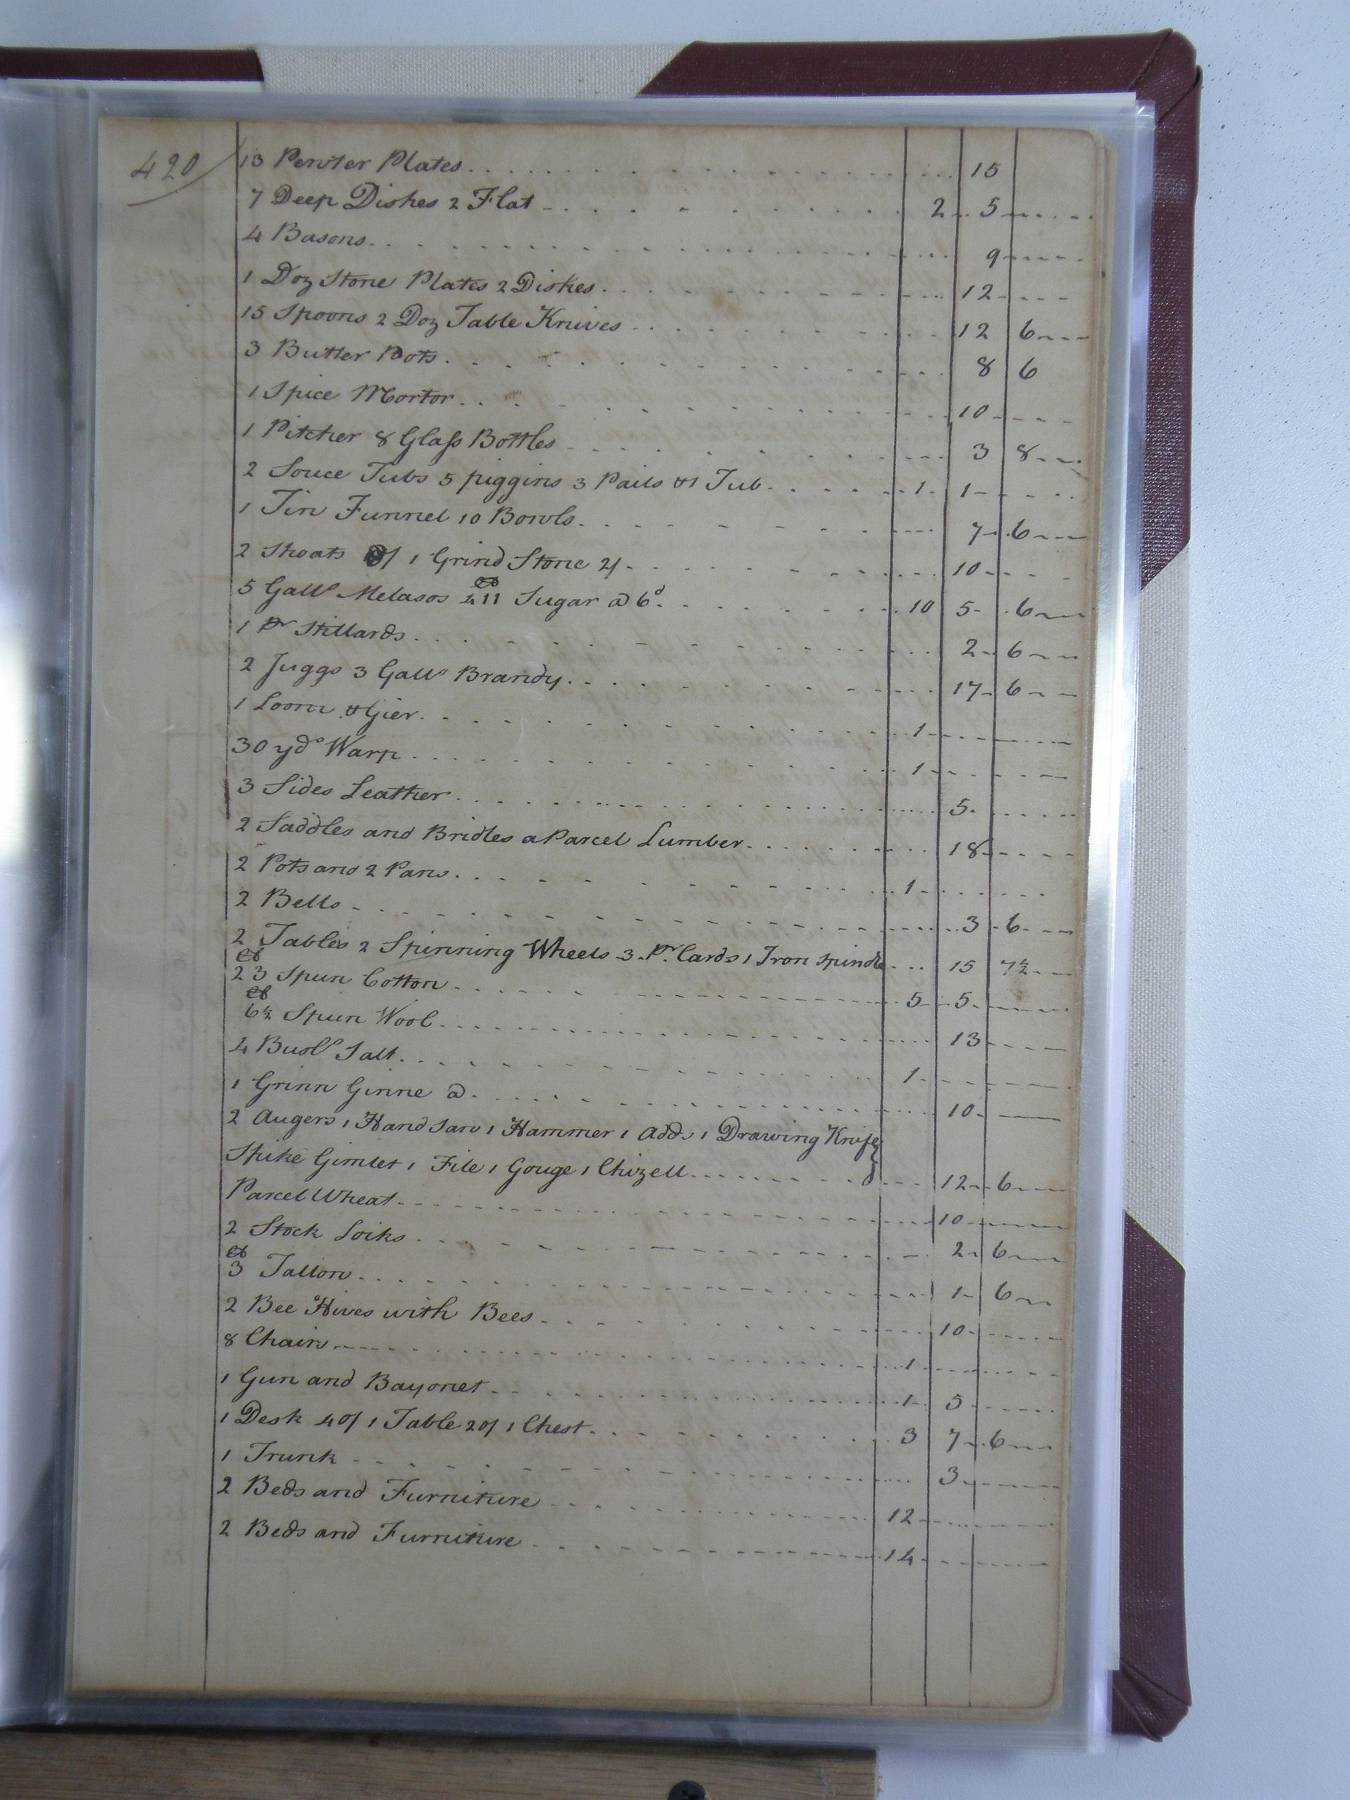 420
13 Pewter Plates 15
7 Deep Dishes 2 Flat 2 5
4 Basons 9
1 Doz Stone Plates 2 Dishes 12
15 Spoons 2 Doz Table Knives 12 6
3 Butter Pots 8 6
1 Spice Mortor 10
1 Pitcher 8 Glass Bottles 3 8
2 Souce Tubs 5 piggins 3 Pails & 1 Tub 1 1
1 Tin Funnel 10 Bowls 7 6
2 Shoats 8/ 1 Grind Stone 2/ 10
5 Galls Melasos 411 Sugar @ 6d 10 5 6
1 Pr Stillards 2 6
2 Juggs 3 Galls Brandy 17 6
1 Loom & Gier 1
30 yds Warp 1
3 Sides Leather 5
2 Saddles and Bridles a Parcel Lumber 18
2 Pots and 2 Pans 1
2 Bells 3 6
2 Tables 2 Spinning Wheels 3 Pr Cards 1 Iron Spindle 15 7½
23 lb Spun Cotton 5 5
6½ lb Spun Wool 13
4 Busls Salt 1
1 Grinn Ginne @ 10
2 Augers 1 Hand Saw 1 Hammer 1 Adds 1 Drawing Knife
Spike Gimlet 1 File 1 Gouge 1 Chizell 12 6
Parcel Wheat 10
2 Stock Locks 2 6
3 lb Tallow 1 6
2 Bee Hives with Bees 10
8 Chairs 1
1 Gun and Bayonet 1 5
1 Desk 40/ 1 Table 20/ 1 Chest 3 7 6
1 Trunk 3
2 Beds and Furniture 12
2 Beds and Furniture 14